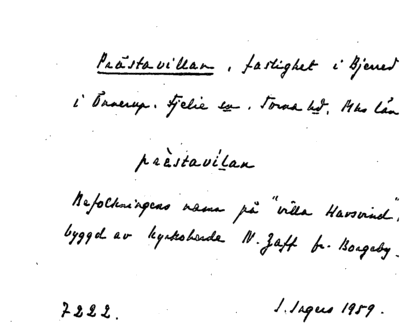 Prästavillan, fastighet i Bjerred
i Önnerup. Fjelie sn. Torna hd. Mhs län
prä̀stavílan
Befolkningens namn på "villa Havsvind",
byggd av kyrkoherde N. Zaff fr. Borgeby.
7222.
I. Ingers 1959.